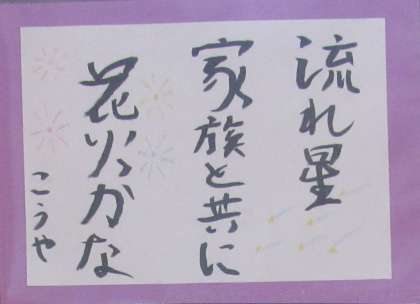 流れ星
家族と共に
花火かな
こうや